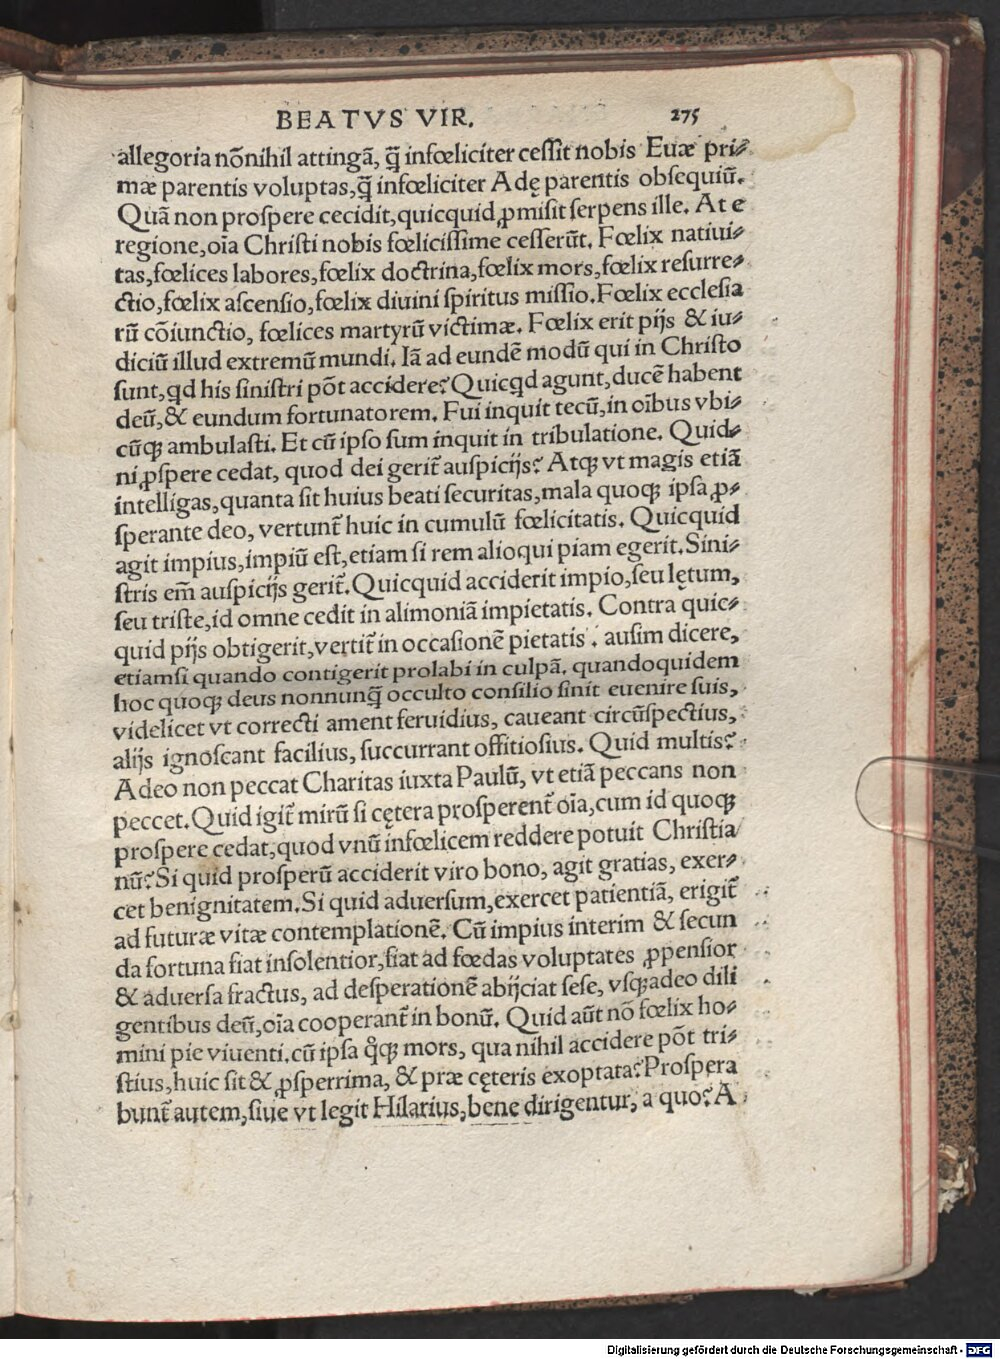 BEATVS VIR. 275
allegoria nõnihil attingã, q̃ infœliciter cessit nobis Euæ pri⸗
mæ parentis voluptas, q̃ infœliciter Adę parentis obsequiũ.
Quã non prospere cecidit, quicquid ꝓmisit serpens ille. At e
regione, oĩa Christi nobis fœlicissime cesserũt. Fœlix natiui⸗
tas, fœlices labores, fœlix doctrina, fœlix mors, fœlix resurre⸗
ctio, fœlix ascensio, fœlix diuini spiritus missio. Fœlix ecclesia
rũ cõiunctio, fœlices martyrũ victimæ. Fœlix erit pijs & iu⸗
diciũ illud extremũ mundi. Iã ad eundẽ modũ qui in Christo
sunt, qd his sinistri põt accidere? Quicqd agunt, ducẽ habent
deũ, & eundum fortunatorem. Fui inquit tecũ, in oĩbus vbi⸗
cũqꝫ ambulasti. Et cũ ipso sum inquit in tribulatione. Quid⸗
ni ꝓspere cedat, quod dei gerit̃ auspicijs? Atqꝫ vt magis etiã
intelligas, quanta sit huius beati securitas, mala quoqꝫ ipsa ꝓ⸗
sperante deo, vertunt̃ huic in cumulũ fœlicitatis. Quicquid
agit impius, impiũ est, etiam si rem alioqui piam egerit. Sini⸗
stris em̃ auspicijs gerit̃. Quicquid acciderit impio, seu lętum,
seu triste, id omne cedit in alimoniã impietatis. Contra quic⸗
quid pijs obtigerit, vertit̃ in occasionẽ pietatis. ausim dicere,
etiamsi quando contigerit prolabi in culpã, quandoquidem
hoc quoqꝫ deus nonnunq̃ occulto consilio sinit euenire suis,
videlicet vt correcti ament feruidius, caueant circũspectius,
alijs ignoscant facilius, succurrant offitiosius. Quid multis?
Adeo non peccat Charitas iuxta Paulũ, vt etiã peccans non
peccet. Quid igit̃ mirũ si cętera prosperent̃ oĩa, cum id quoqꝫ
prospere cedat, quod vnũ infœlicem reddere potuit Christia
nũ? Si quid prosperũ acciderit viro bono, agit gratias, exer⸗
cet benignitatem. Si quid aduersum, exercet patientiã, erigit̃
ad futuræ vitæ contemplationẽ. Cũ impius interim & secun
da fortuna fiat insolentior, fiat ad fœdas voluptates ꝓpensior
& aduersa fractus, ad desperationẽ abijciat sese, vsqꝫadeo dili
gentibus deũ, oĩa cooperant̃ in bonũ. Quid aũt nõ fœlix ho⸗
mini pie viuenti, cũ ipsa qͦqꝫ mors, qua nihil accidere põt tri⸗
stius, huic sit & ꝓsperrima, & præ cęteris exoptata? Prospera
bunt̃ autem, siue vt legit Hilarius, bene dirigentur, a quo? A
Digitalisierung gefördert durch die Deutsche Forschungsgemeinschaft - DFG